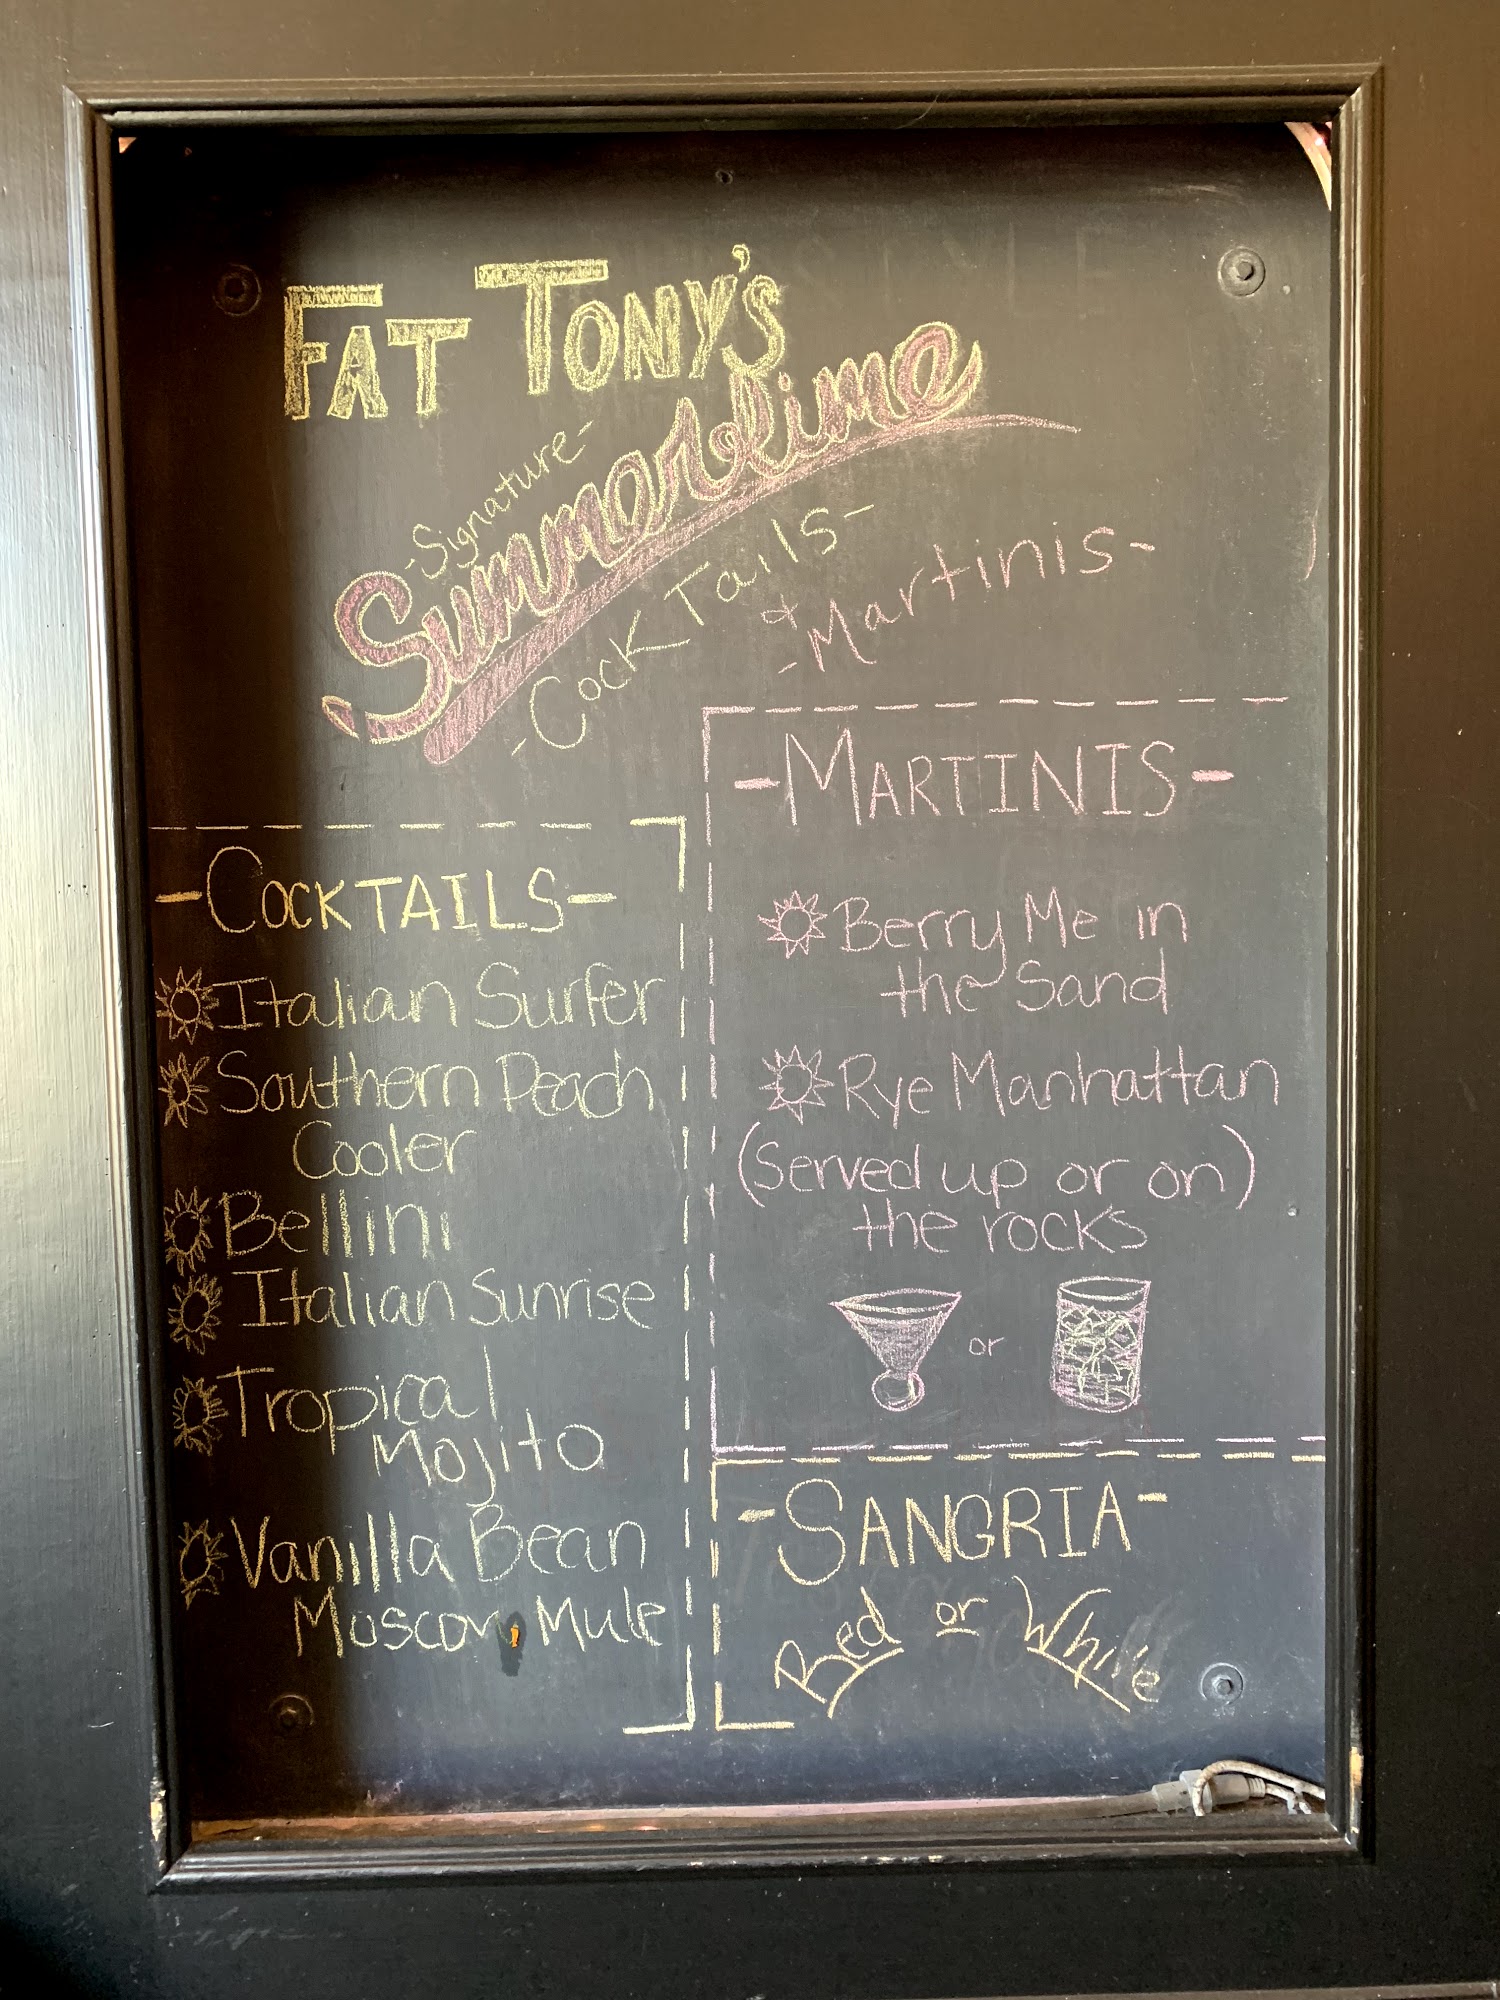 FAT TONY'S
-Signature-
Summertime
-CockTails-
&
-Martinis-
-COCKTAILS-
Italian Surfer
Southern Peach
Cooler
Bellini
Italian Sunrise
Tropical
Mojito
Vanilla Bean
Moscow Mule
-MARTINIS-
Berry Me in
the Sand
Rye Manhattan
(Served up or on)
the rocks
or
-SANGRIA-
Red or White